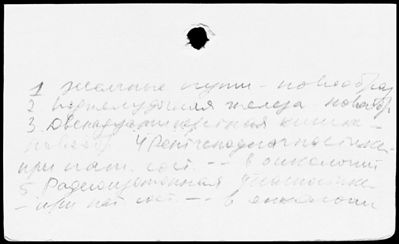 1 Желчные пути - новообраз
2 Поджелудочная железа новообр
3. Двенадцатиперстная кишка -
новообр. 4 Рентгенодиагностика
при пат. сост. -- в онкологии
5 Радиоизотопная диагностика
- при пат сост. -- в онкологии